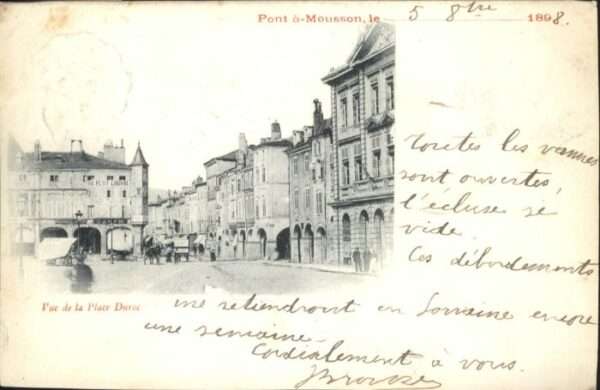 Pont à-Mousson, le 5 8bre 1898.
toutes les vannes
sont ouvertes,
l'écluse se
vide.
Ces débordements
me retiendront en Lorraine encore
une semaine.
Cordialement à vous.
Vue de la Place Duroc